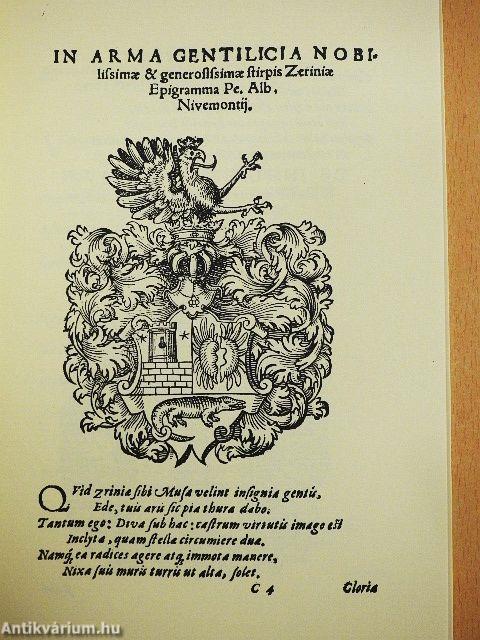 IN ARMA GENTILICIA NOBI-
lissimæ & generosissimæ stirpis Zeriniæ
Epigramma Pe. Alb.
Nivemontij.
QVid Zrinia sibi Musa velint insignia gentú,
Ede, tuis aris sic pia thura dabo.
Tantum ego: Diva sub hac: castrum virtutis imago est
Inclyta, quam stella circumiere duæ.
Namq; ea radices agere atq; immota manere,
Nixa suis muris turris ut alta, solet.
C 4
Gloria
Antikvárium.hu